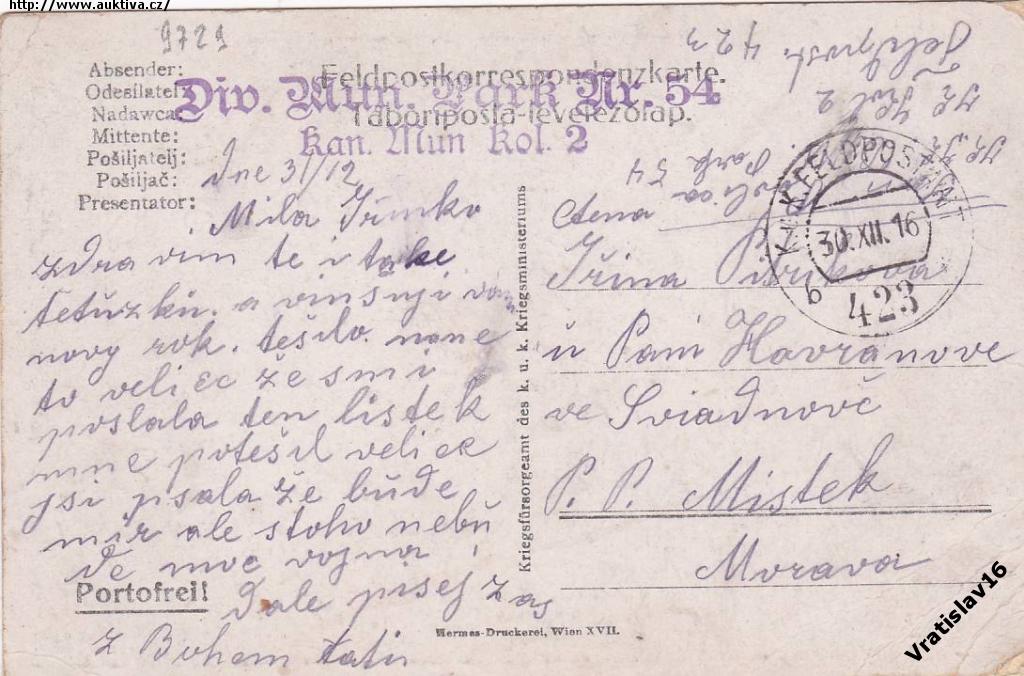 http://www.auktiva.cz/
9729
Absender:
Odesílatel:
Nadawca:
Mittente:
Pošiljatelj:
Pošiljač:
Presentator:
Feldpostkorrespondenzkarte.
Tábori posta-levelezőlap.
Div. Mun. Park Nr. 54
Kan. Mun Kol. 2
Feldpost. 423
Kol 2
Park 54
K.u.K. FELDPOSTAMT
30.XII.16
b
423
Dne 31/12
Mila Iřinko
zdra vim te i take
tetuzku. a vinsuji vam
novy rok. těšilo. mne
to veli ec že smi
poslala ten listek
mne potěšil veli ec
jsi psala že bude
mir ale stoho nebu
de moc vojna
Dale pisej zas
z Bohem tatu
Portofrei!
Kriegsfürsorgeamt des k. u. k. Kriegsministeriums
Hermes-Druckerei, Wien XVII.
ctena
Iřina
u Pani Havranove
ve Sviadnově
P. P. Mistek
Morava
Vratislav16